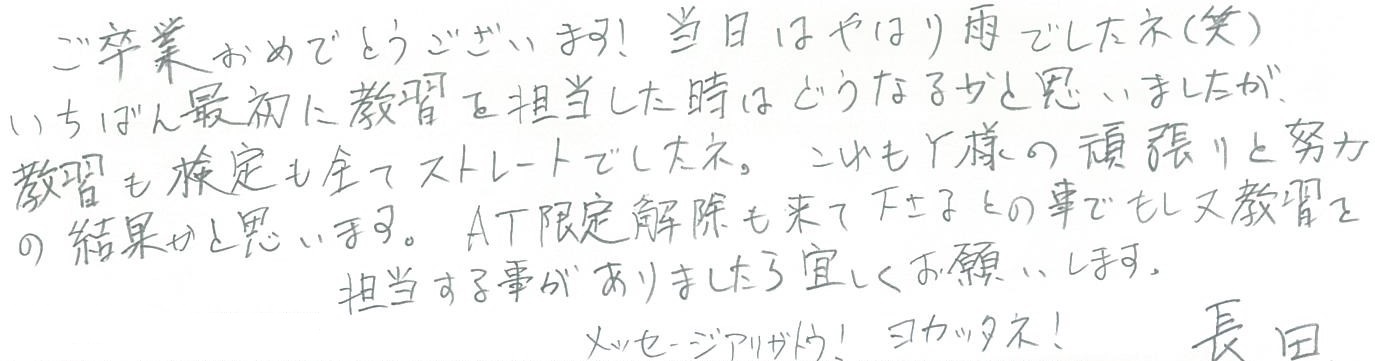 ご卒業おめでとうございます! 当日はやはり雨でしたネ(笑)
いちばん最初に教習を担当した時はどうなるかと思いましたが、
教習も検定も全てストレートでしたネ。これもY様の頑張りと努力
の結果かと思います。AT限定解除も来て下さるとの事でもし又教習を
担当する事がありましたら宜しくお願いします。
メッセージアリガトウ! ヨカッタネ! 長田